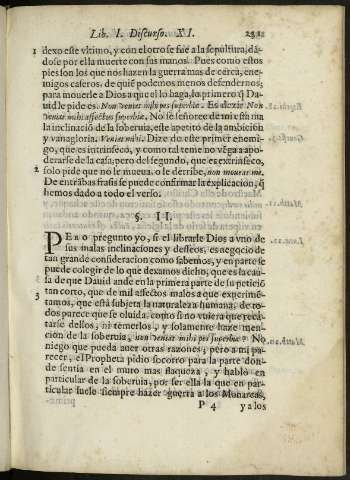 Lib. I. Discurso. XI.
1 dexo este vltimo, y con el otro se fue a la sepultura, dã-
dose por ella muerte con sus manos. Pues como estos
pies son los que nos hazen la guerra mas de cerca, ene-
migos caseros, de quiẽ podemos menos defendernos;
para mouerle a Dios a que ello haga, lo primero q̃ Da-
uid le pide es. Non veniat mihi pes superbiæ. Es dezir Non
veniat mihi affectus superbiæ. No se señoree de mi esta ma
la inclinaciõ de la soberuia, este apetito de la ambiciõn
y vanagloria. Veniat mihi. Dize do este primer enemi-
go, que es intrinseco, y como tal tenie no vẽga a apo-
derarse de la casa; pero del segundo, que es extrinseco,
2 solo pide que no le mueua, o le derribe, non moueat me.
De entrãbas frasis se puede confirmar la explicacion, q̃
hemos dado a todo el verso.
§. II.
PERO pregunto yo, si el librarle Dios a vno de
sus malas inclinaciones y desseos, es negocio de
tan grande consideracion como sabemos, y en parte se
puede colegir de lo que dexamos dicho, que es la cau-
sa de que Dauid ande en la primera parte de su peticiõ
3 tan corto, que de mil affectos malos a que experimẽ-
tamos, que està subjeta la naturaleza humana, de to-
dos parece que se oluida, como si no vuiera que reca-
tarse dellos, ni temerlos, y solamente haze men-
cion de la soberuia, non veniat mihi pes superbiæ? No
niego que pueda auer otras razones; pero a mi pa-
recer, el Propheta pidio socorro para la parte don-
de sentia en el muro mas flaqueza, y hablò en
particular de la soberuia, por ser ella la que en par-
ticular suele siempre hazer guerra a los Monarcas,
P 4 y a los